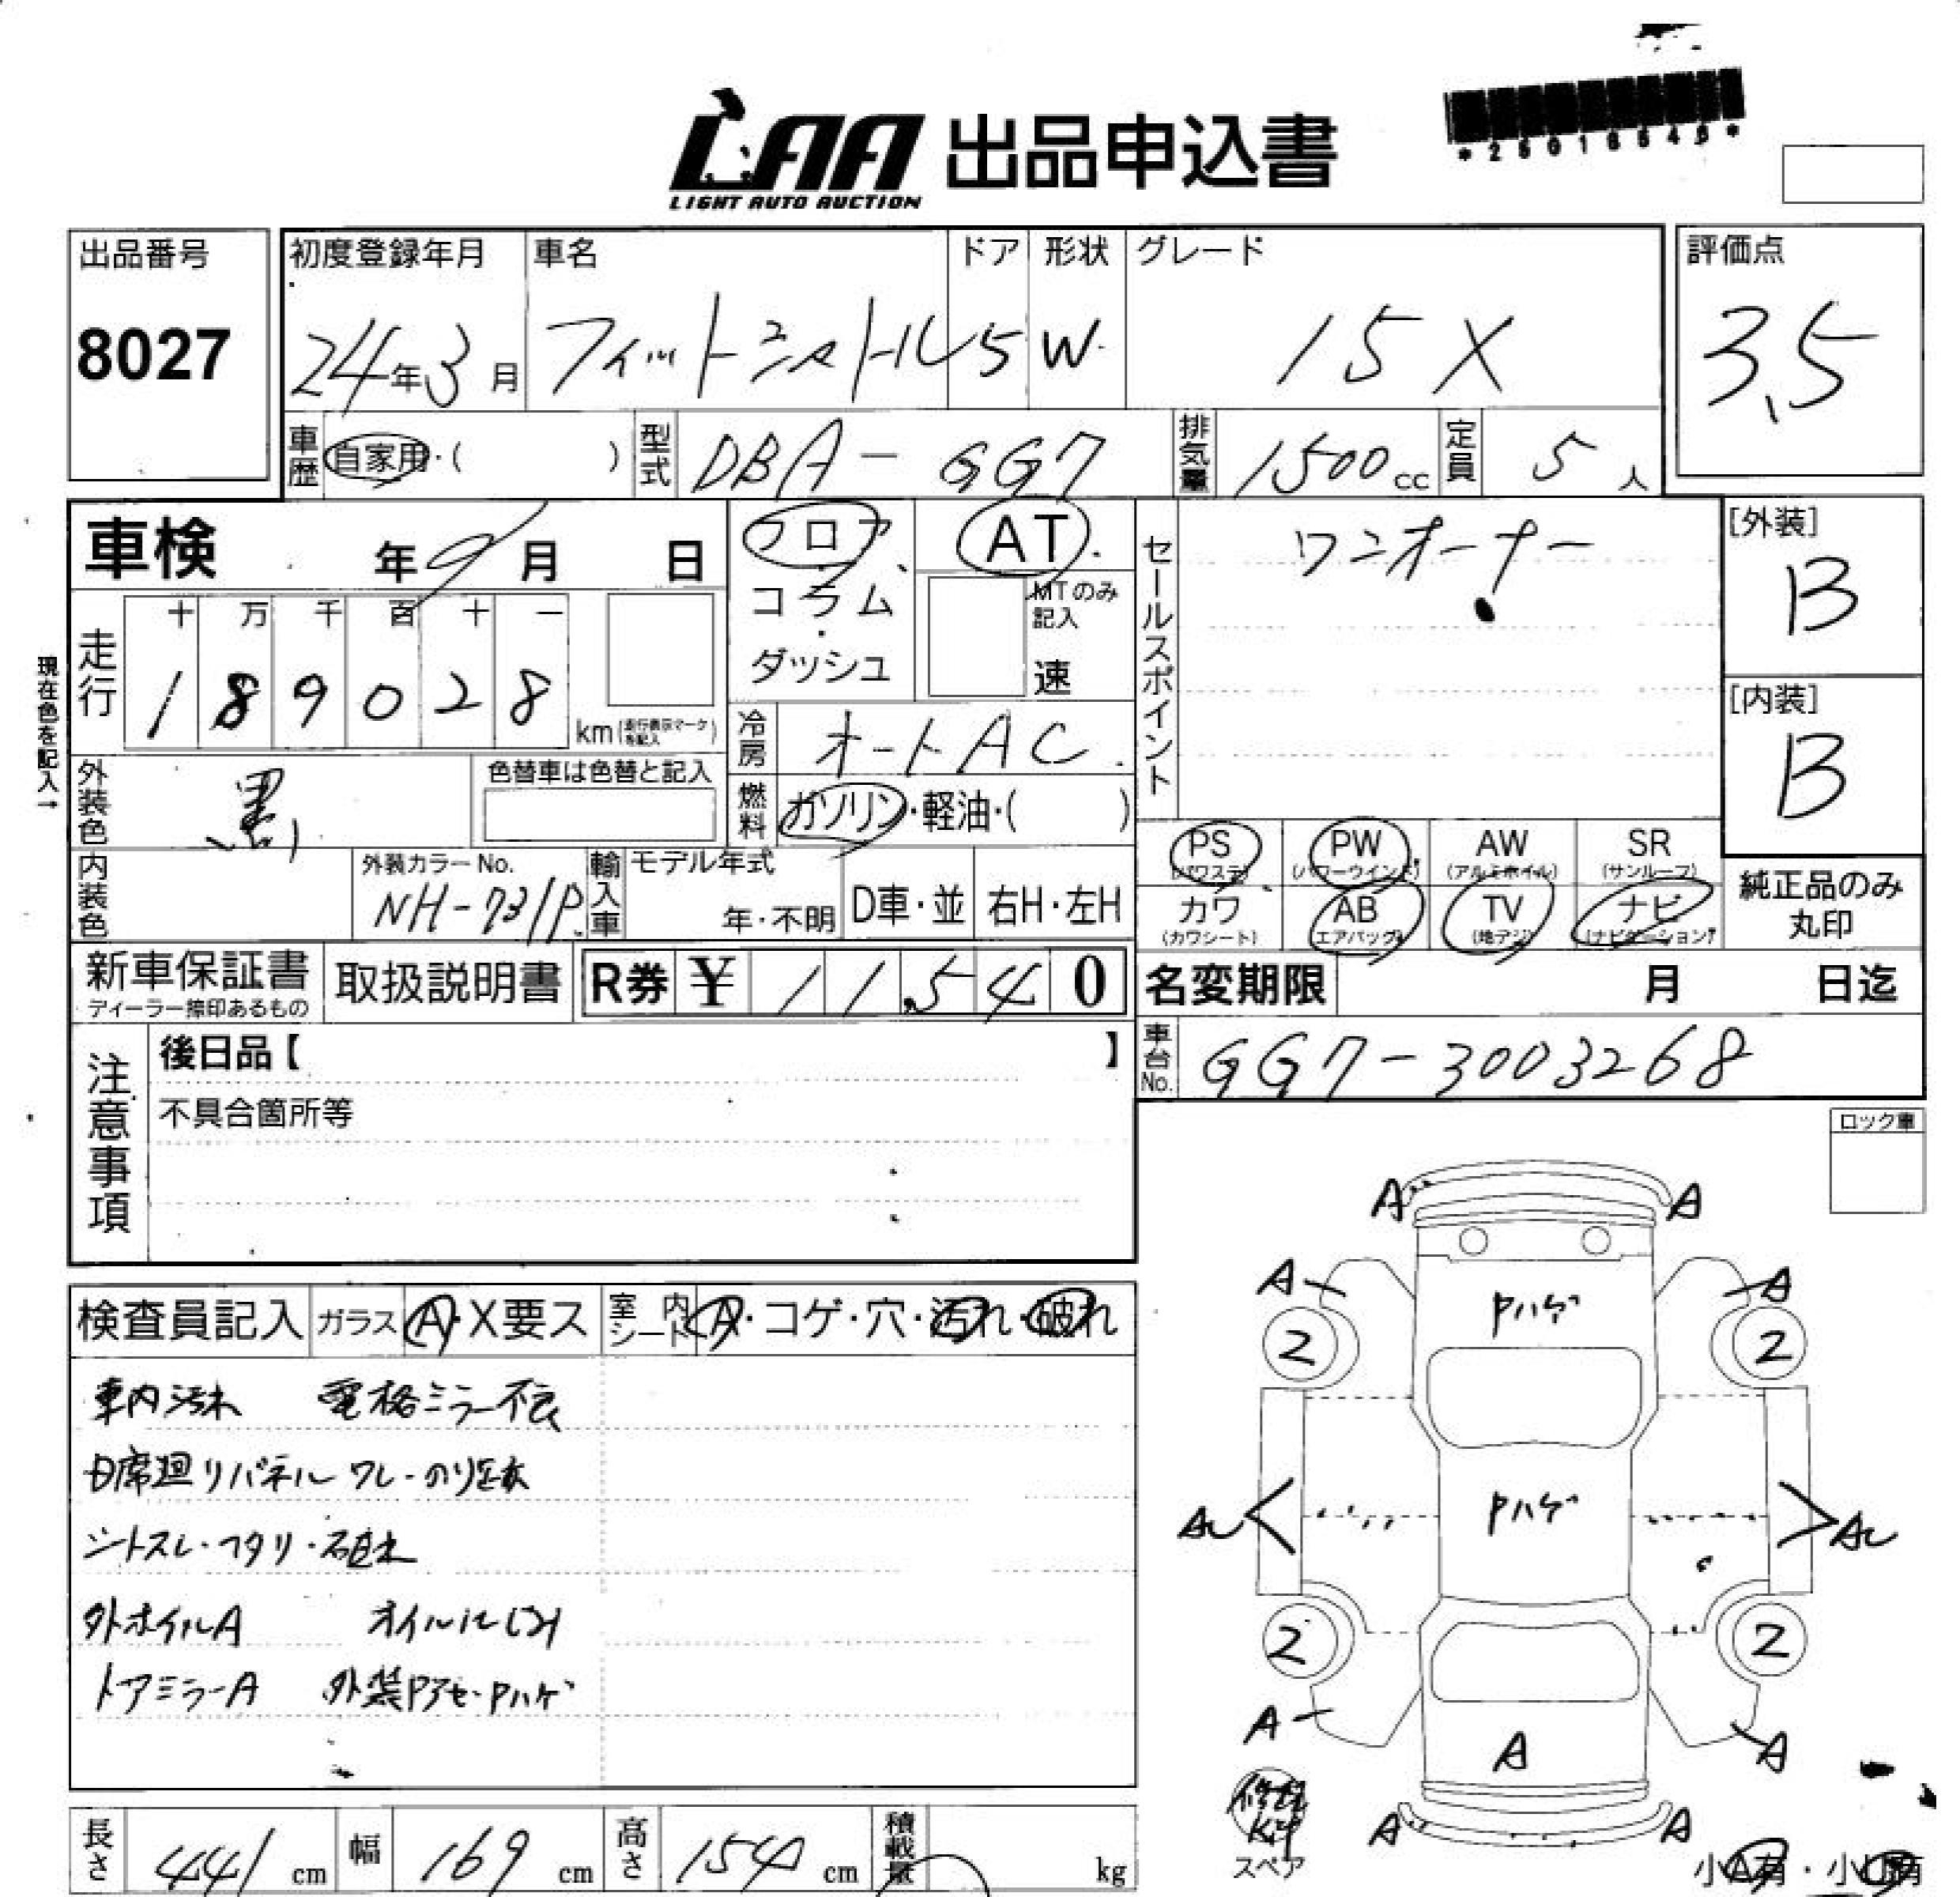 LAA 出品申込書
LIGHT AUTO AUCTION
*25016545*
出品番号
8027
初度登録年月
24年3月
車名
フィットシャトル
ドア
5
形状
W
グレード
15X
評価点
3.5
車歴
自家用・( )
型式
DBA-GG7
排気量
1500cc
定員
5人
車検 年9月 日
フロア
コラム
・
ダッシュ
AT
MTのみ
記入
速
セールスポイント
ワンオーナー
[外装]
B
[内装]
B
現在色を記入→
走行
十 万 千 百 十 一
1 8 9 0 2 8
km(走行表示マークを記入)
冷房
オートAC
外装色
黒
色替車は色替と記入
燃料
ガソリン・軽油・( )
PS
(パワステ)
PW
(パワーウインド)
AW
(アルミホイル)
SR
(サンルーフ)
カワ
(カワシート)
AB
(エアバック)
TV
(地デジ)
ナビ
(ナビゲーション)
純正品のみ
丸印
内装色
外装カラーNo.
NH-731P
輸入車
モデル年式
年・不明
D車・並
右H・左H
新車保証書
ディーラー捺印あるもの
取扱説明書
R券 ¥ 11,540
名変期限 月 日迄
注意事項
後日品【 】
不具合箇所等
車台No.
GG7-3003268
ロック車
検査員記入
ガラス
A・X要ス
室内シート
A・コゲ・穴・汚れ・破れ
車内汚れ 電格ミラー不良
内席廻りパネルワレ・のり跡
シートスレ・ヘタリ・破れ
外ホイルA オイルにじみ
ドアミラーA 外装Pアセ・Pハゲ
A A
A A
Pハゲ
2 2
Pハゲ
AU AU
2 2
A A
A
A A
修理
Kit
スペア
小A有・小U有
長さ 441 cm
幅 169 cm
高さ 154 cm
積載量 kg